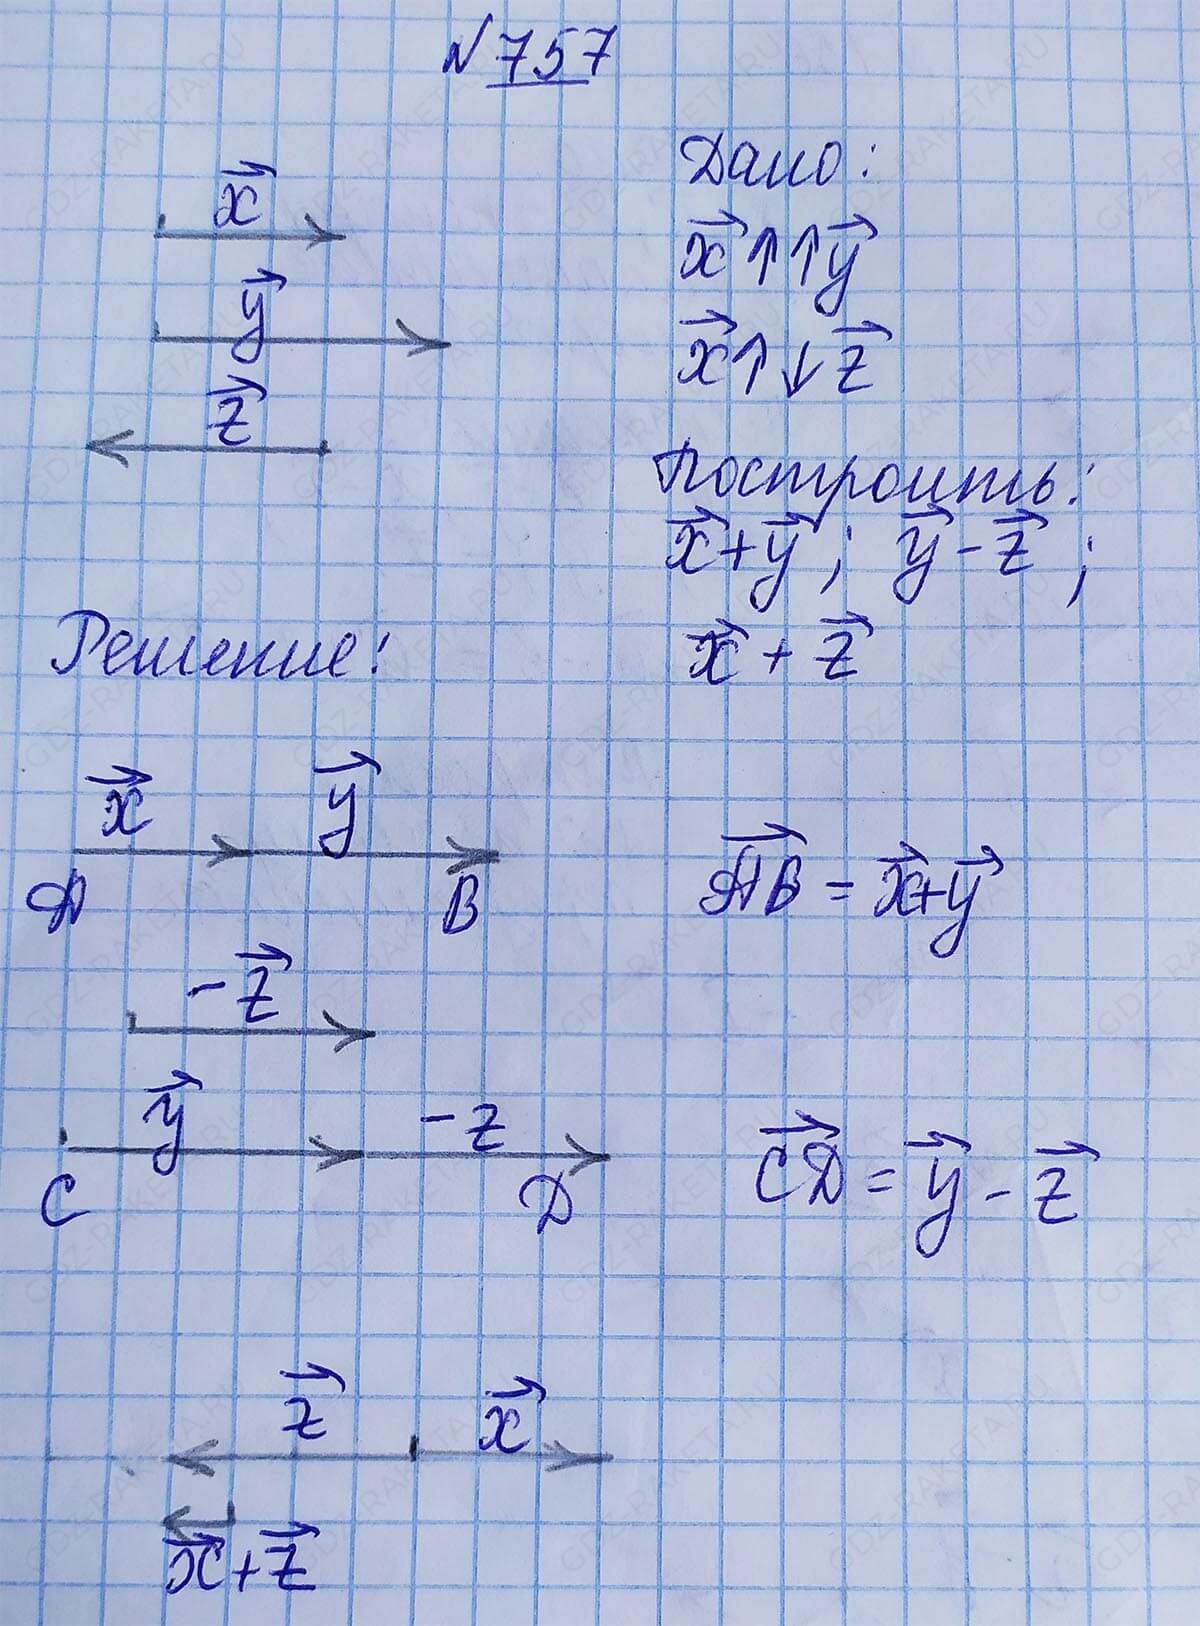 №757
x⃗
y⃗
z⃗
Дано:
x⃗ ↑↑ y⃗
x⃗ ↑↓ z⃗
Построить:
x⃗ + y⃗ ; y⃗ - z⃗ ;
x⃗ + z⃗
Решение:
x⃗ y⃗
A B
A⃗B⃗ = x⃗ + y⃗
-z⃗
y⃗ -z
C D
C⃗D⃗ = y⃗ - z⃗
z⃗ x⃗
x⃗ + z⃗
GDZ-RAKETA.RU